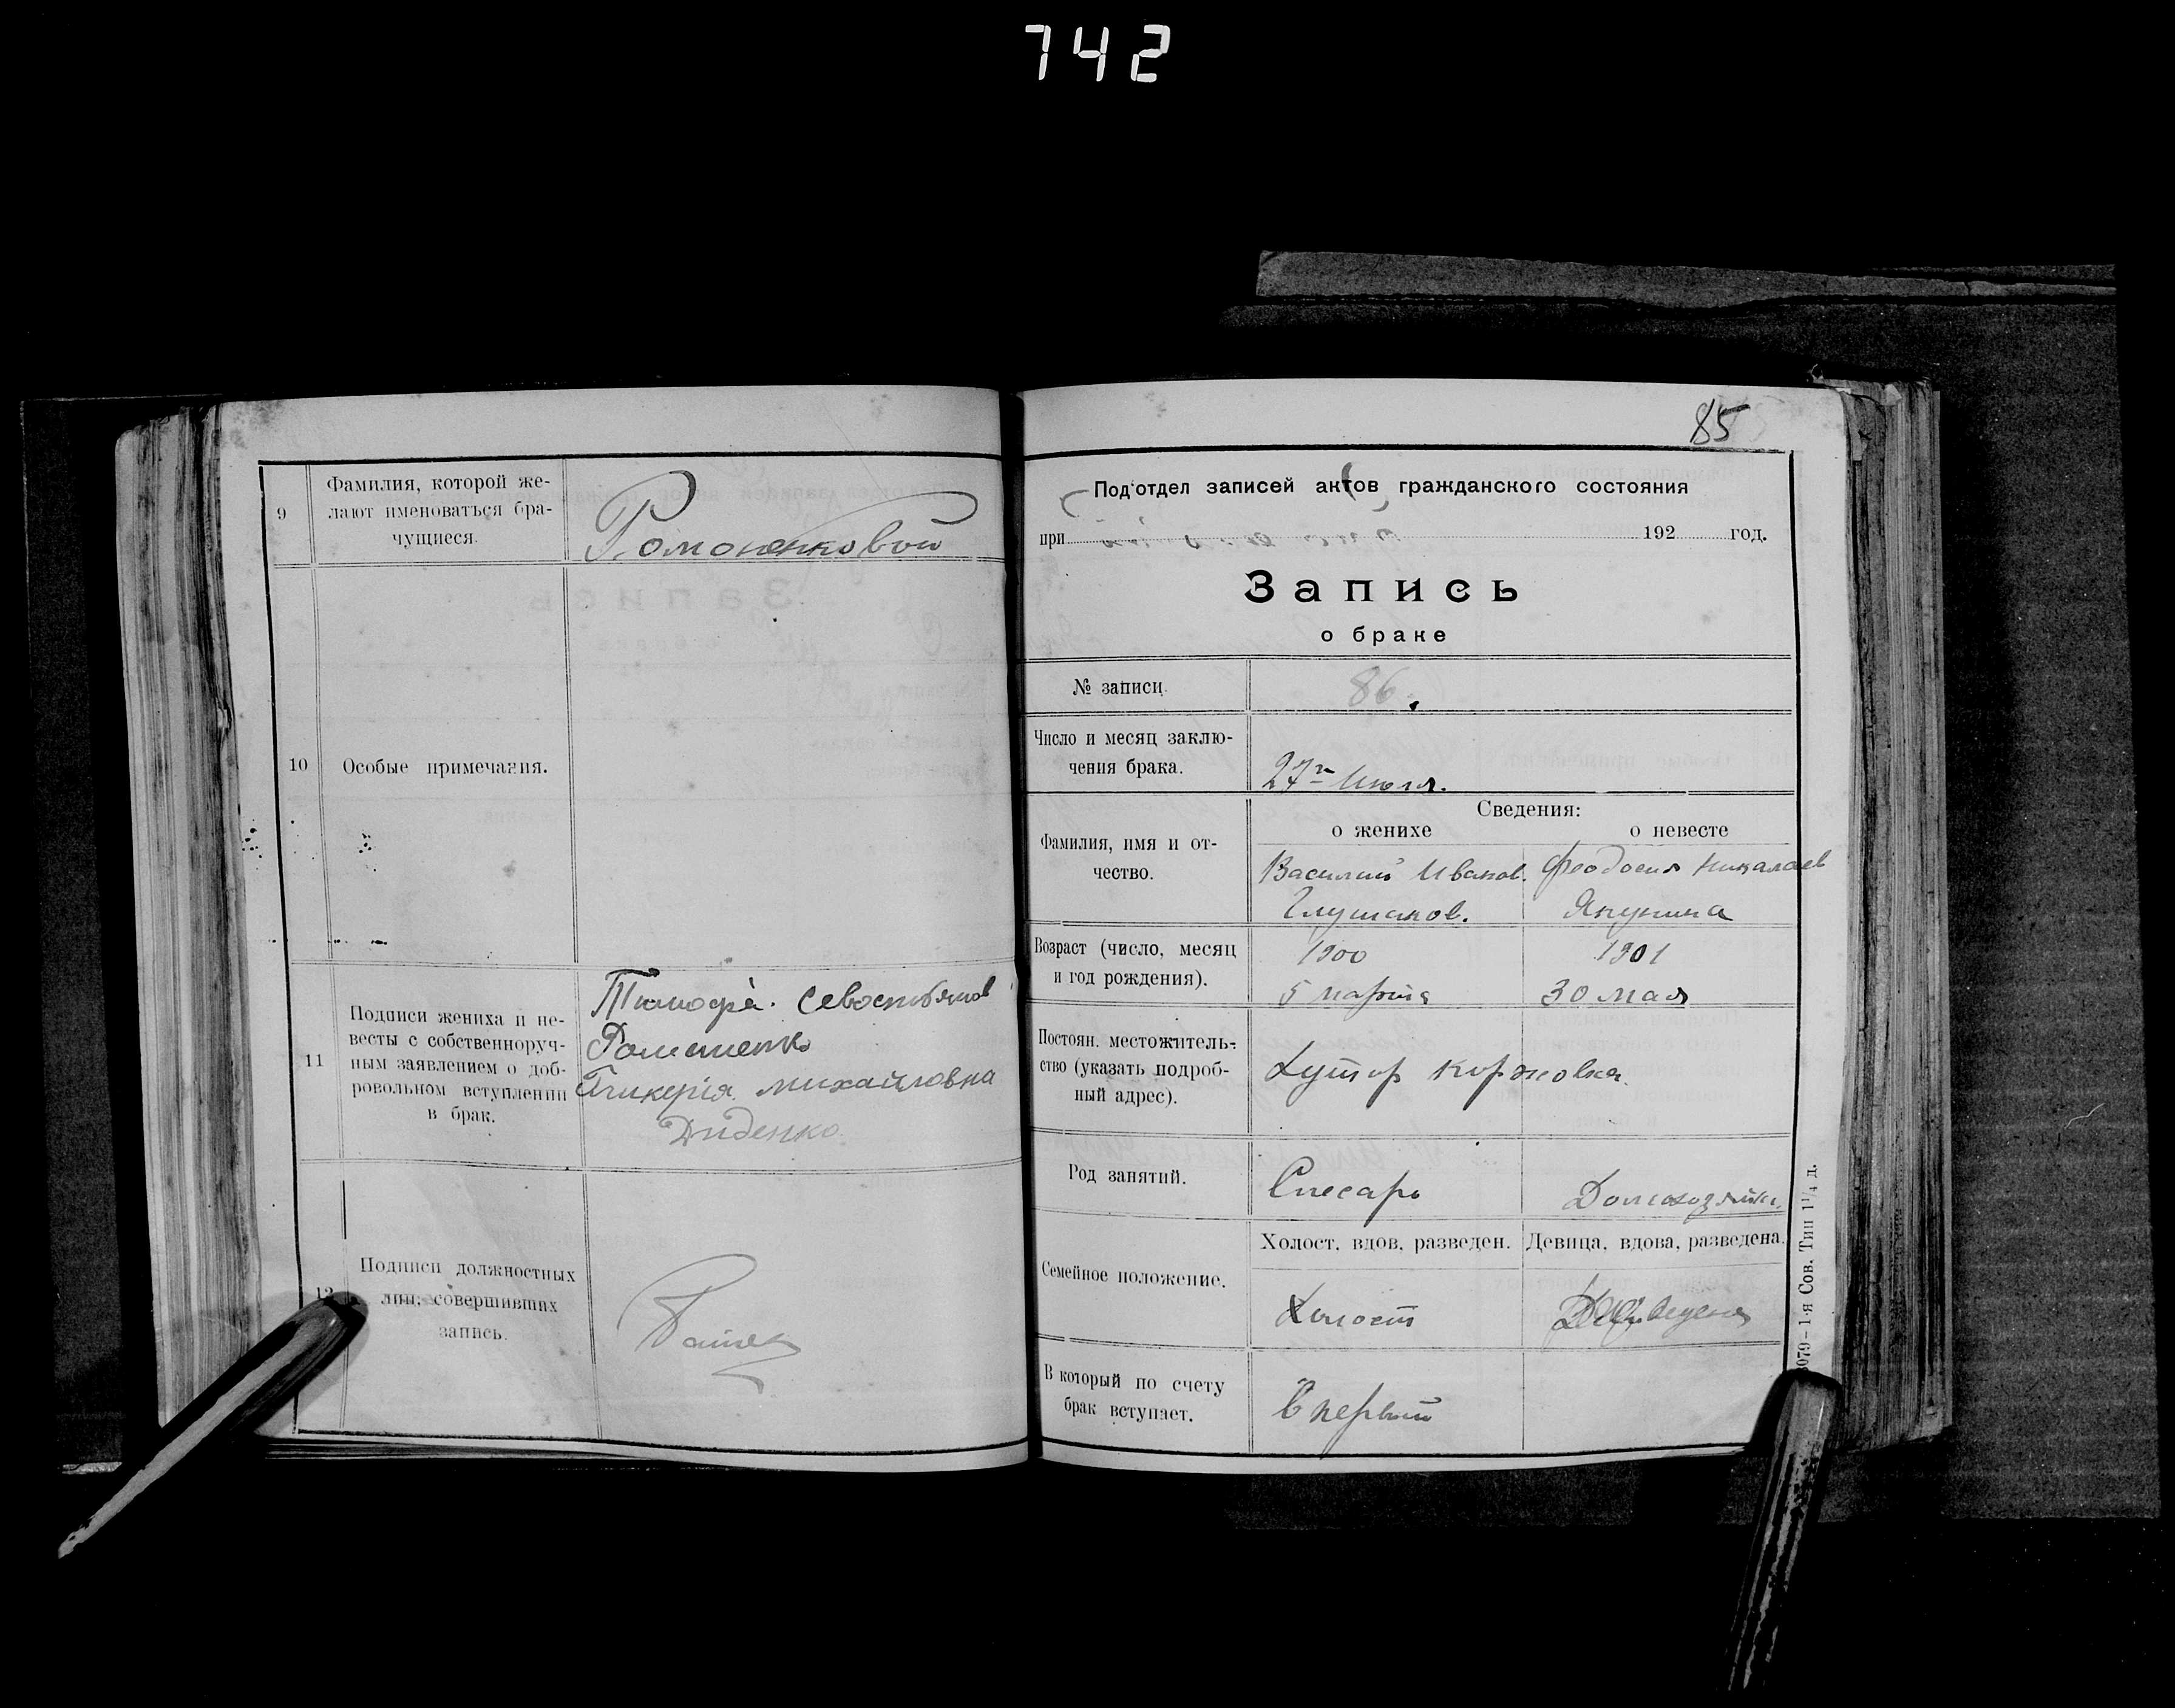 742
9
Фамилия, которой же-
лают именоваться бра-
чущиеся.
Романенковой
10
Особые примечания.
11
Подписи жениха и не-
весты с собственноруч-
ным заявлением о доб-
ровольном вступлении
в брак.
Тимофей Севостьянов
Романенко
Гликерія михайловна
Диденко
12
Подписи должностных
лиц, совершивших
запись.
85
Подотдел записей актов гражданского состояния
при 192 год.
Запись
о браке
№ записи
86.
Число и месяц заклю-
чения брака.
27го Июля.
Сведения:
о женихе
о невесте
Фамилия, имя и от-
чество.
Василий Иванов.
Глушаков.
Феодосия Николаев
Япунина
Возраст (число, месяц
и год рождения).
1900
5 марта
1901
30 мая
Постоян. местожитель-
ство (указать подроб-
ный адрес).
Хутор Коржовка.
Род занятий.
Слесарь
Домохозяйка.
Семейное положение.
Холост, вдов, разведен.
Девица, вдова, разведена.
Холост
В который по счету
брак вступает.
В первый
3079–1-я Сов. Тип 1¼ д.